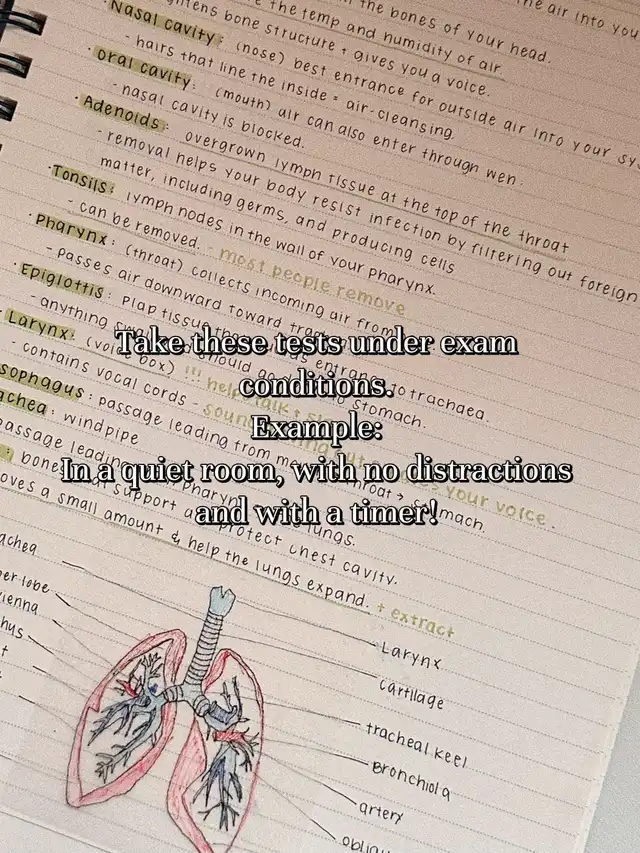 the bones of your head.
the air into you
bone structure + gives you a voice.
the temp and humidity of air
Nasal cavity: (nose) best entrance for outside air into your sy
- hairs that line the inside = air-cleansing.
· oral cavity: (mouth) air can also enter through wen
- nasal cavity is blocked.
· Adenoids: overgrown lymph tissue at the top of the throat
- removal helps your body resist infection by filtering out foreign
matter, including germs, and producing cells
· Tonsils: lymph nodes in the wall of your pharynx.
- can be removed. - most people remove
· Pharynx: (throat) collects incoming air from
- passes air downward toward
· Epiglottis: Flap tissue entrance to trachaea.
- anything should go stomach.
· Larynx: (voice box) !!! help talk
- contains vocal cords - sound your voice.
sophagus: passage leading from throat → stomach.
achea: windpipe
passage leading pharynx lungs.
: bones support protect chest cavity.
oves a small amount & help the lungs expand. + extract
Take these tests under exam
conditions.
Example:
In a quiet room, with no distractions
and with a timer!
achea
er lobe
ienna
hus
t
Larynx
cartilage
tracheal keel
Bronchiola
artery
obliqu